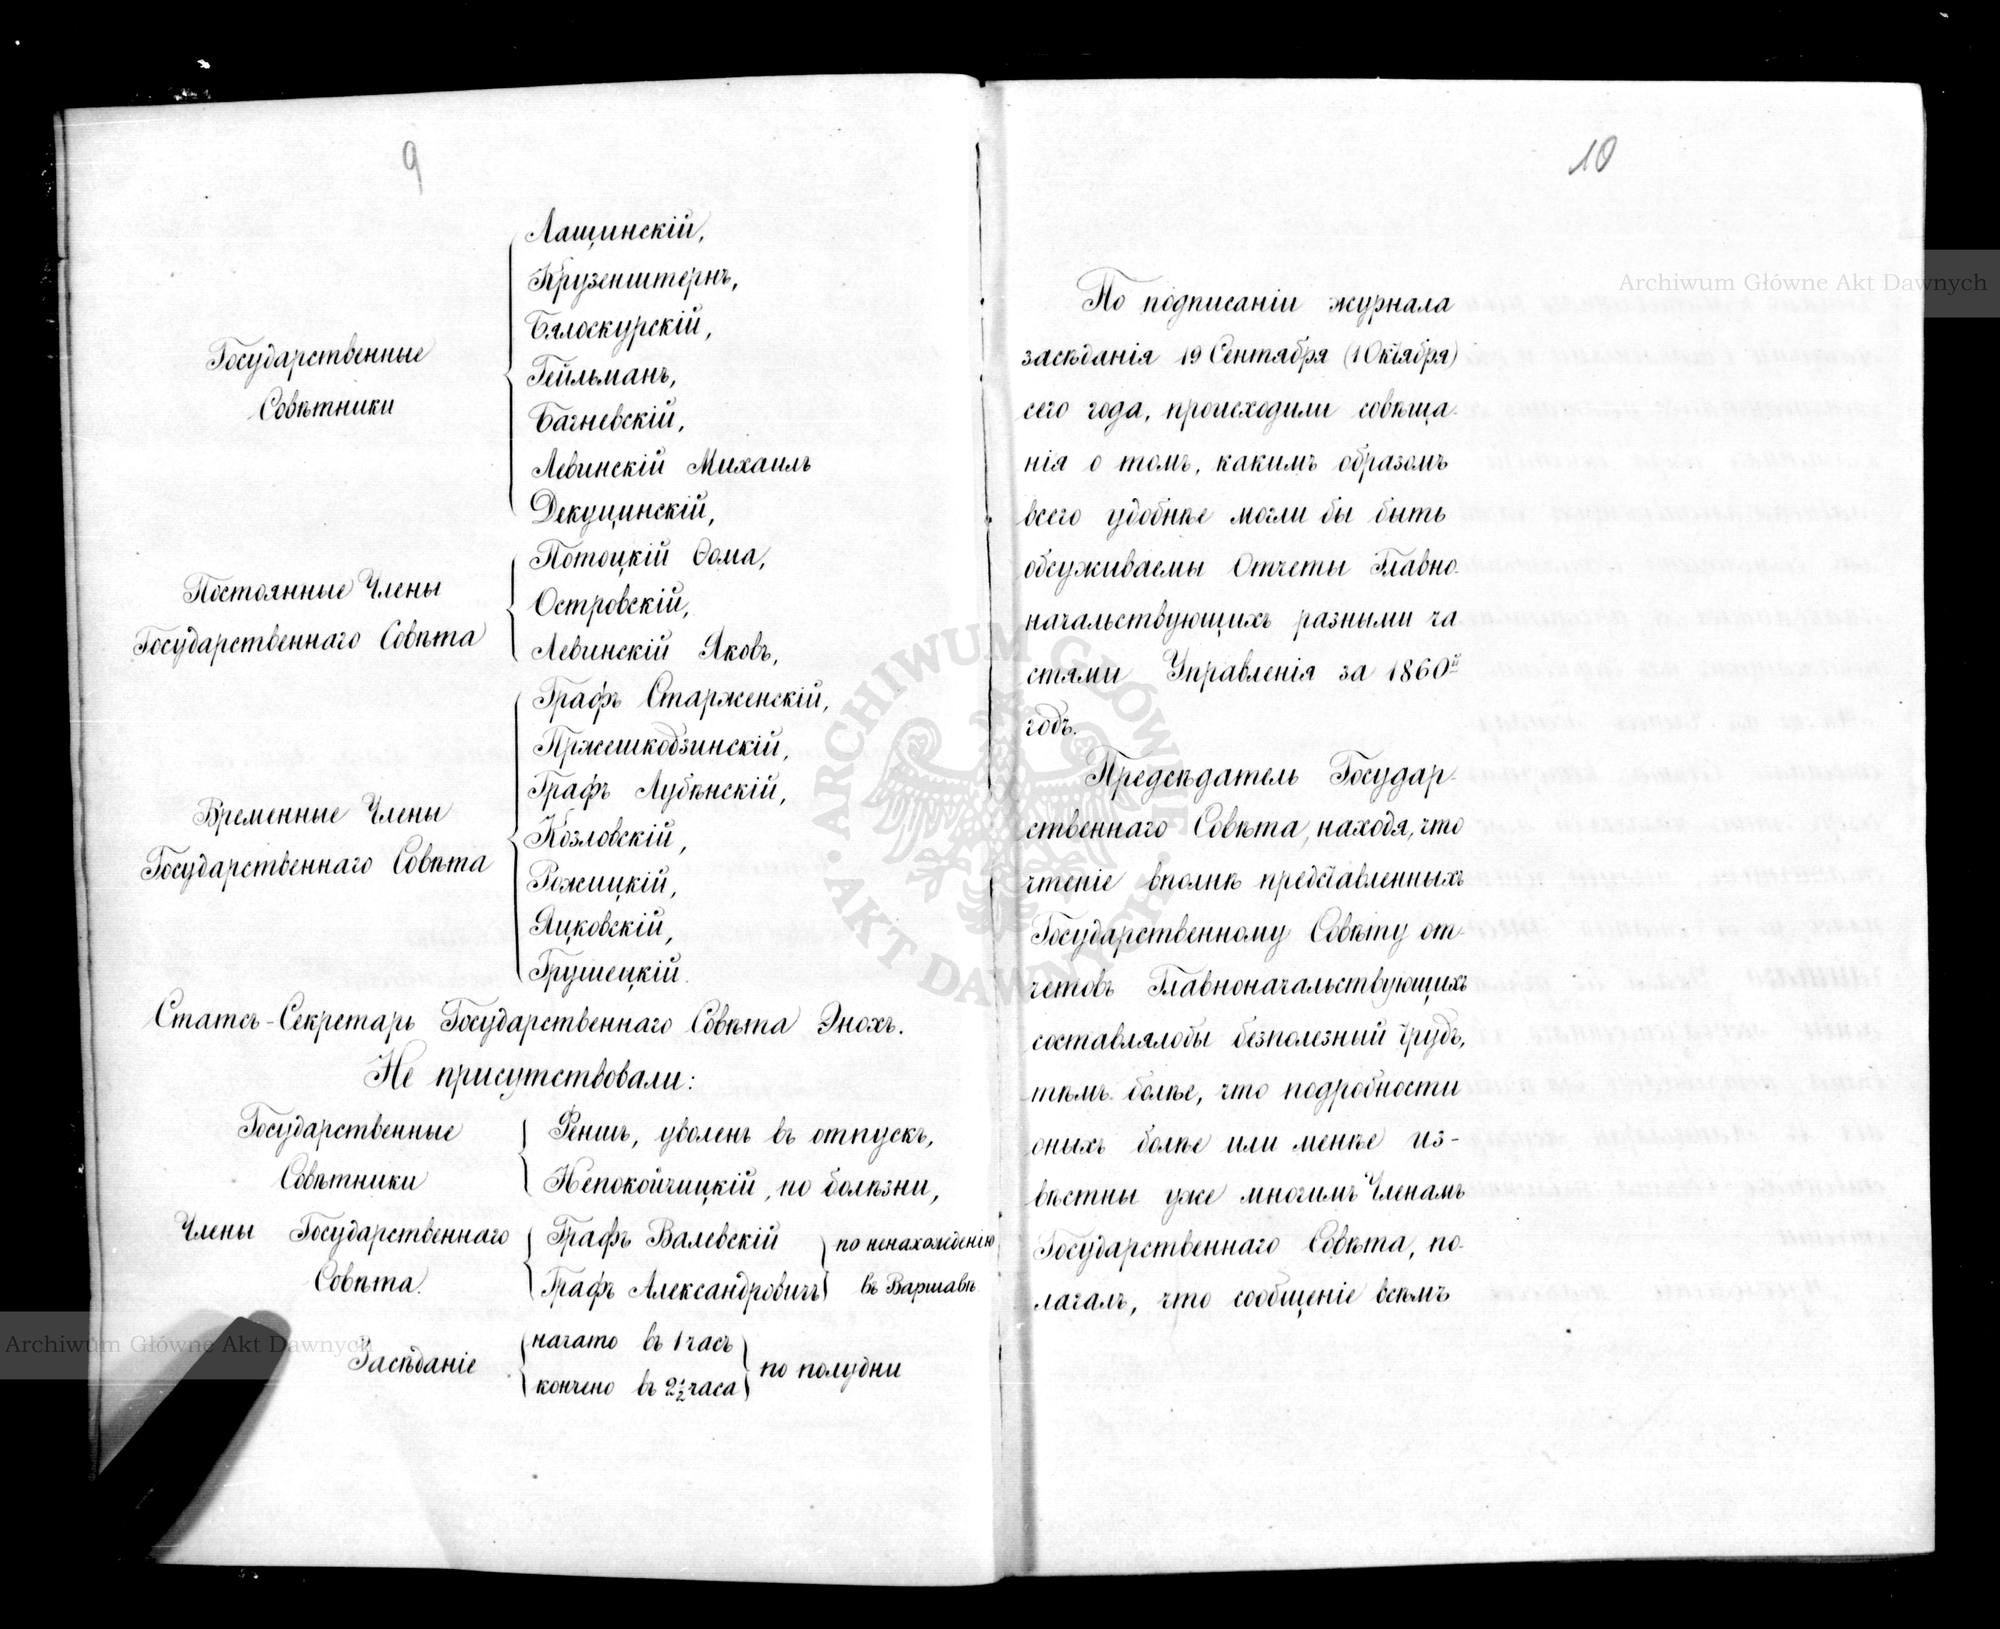 9
Лащинскій,
Крузенштернъ,
Бялоскурскій,
Государственные
Гейльманъ,
Совѣтники
Багневскій,
Левинскій Михаилъ
Декуцинскій,
Потоцкій Ѳома,
Постоянные Члены
Островскій,
Государственнаго Совѣта
Левинскій Яковъ,
Графъ Старженскій,
Пржешкодзинскій,
Графъ Лубѣнскій,
Временные Члены
Козловскій,
Государственнаго Совѣта
Рожицкій,
Яцковскій,
Грушецкій.
Статсъ-Секретарь Государственнаго Совѣта Энохъ.
Не присутствовали:
Государственные
Феншъ, уволенъ въ отпускъ,
Совѣтники
Непокойчицкій, по болѣзни,
Члены Государственнаго
Графъ Валевскій
по ненахожденію
Совѣта.
Графъ Александровичъ
въ Варшавѣ
Засѣданіе
начато въ 1 часъ
кончено въ 2½ часа
по полудни
10
По подписаніи журнала
засѣданія 19 Сентября (1 Октября)
сего года, происходили совѣща-
нія о томъ, какимъ образомъ
всего удобнѣе могли бы быть
обсуживаемы Отчеты Главно-
начальствующихъ разными ча
стями Управленія за 1860й
годъ.
Предсѣдатель Государ-
ственнаго Совѣта, находя, что
чтеніе вполнѣ представленныхъ
Государственному Совѣту от-
четовъ Главноначальствующихъ
составлялобы безполезный трудъ,
тѣмъ болѣе, что подробности
оныхъ болѣе или менѣе из-
вѣстны уже многимъ Членамъ
Государственнаго Совѣта, по-
лагалъ, что сообщеніе всѣмъ
Archiwum Główne Akt Dawnych
Archiwum Główne Akt Dawnych
ARCHIWUM GŁÓWNE · AKT DAWNYCH ·